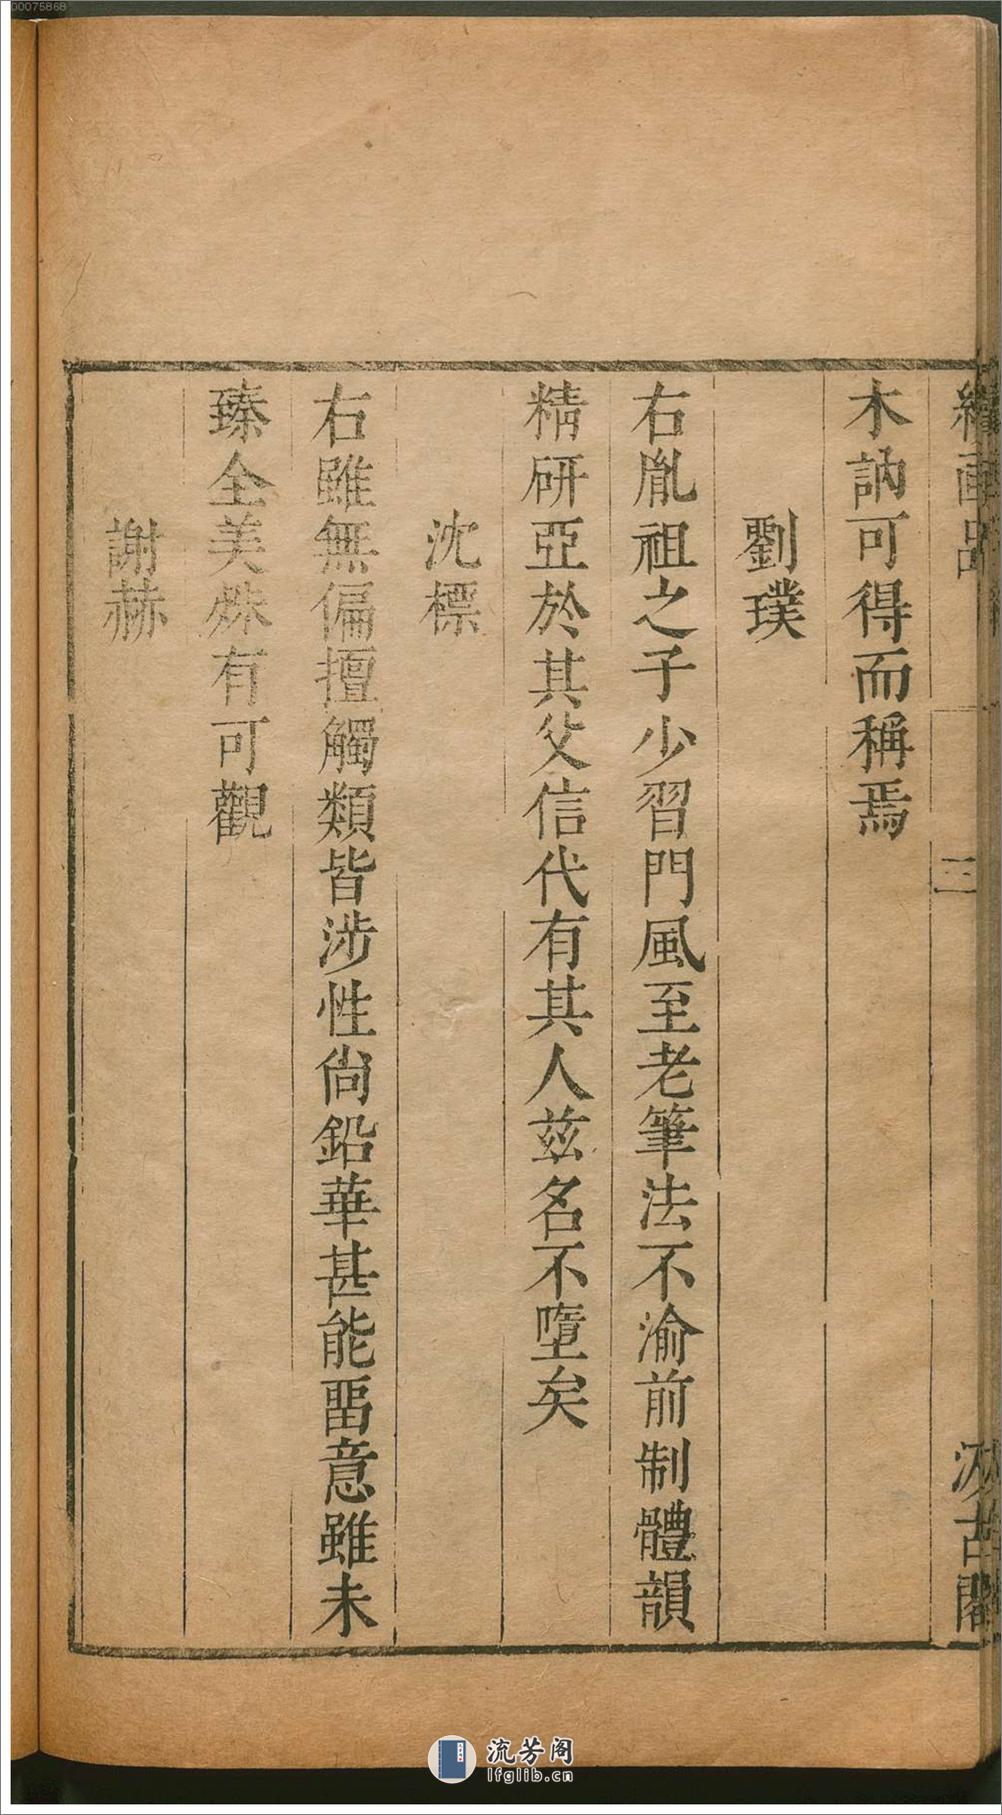 00075868
續畫品
三
汲古閣
木訥可得而稱焉
劉璞
右胤祖之子少習門風至老筆法不渝前制體韻
精研亞於其父信代有其人兹名不墮矣
沈標
右雖無偏擅觸類皆涉性尚鉛華甚能畱意雖未
臻全美殊有可觀
謝赫
流芳阁
lfglib.cn